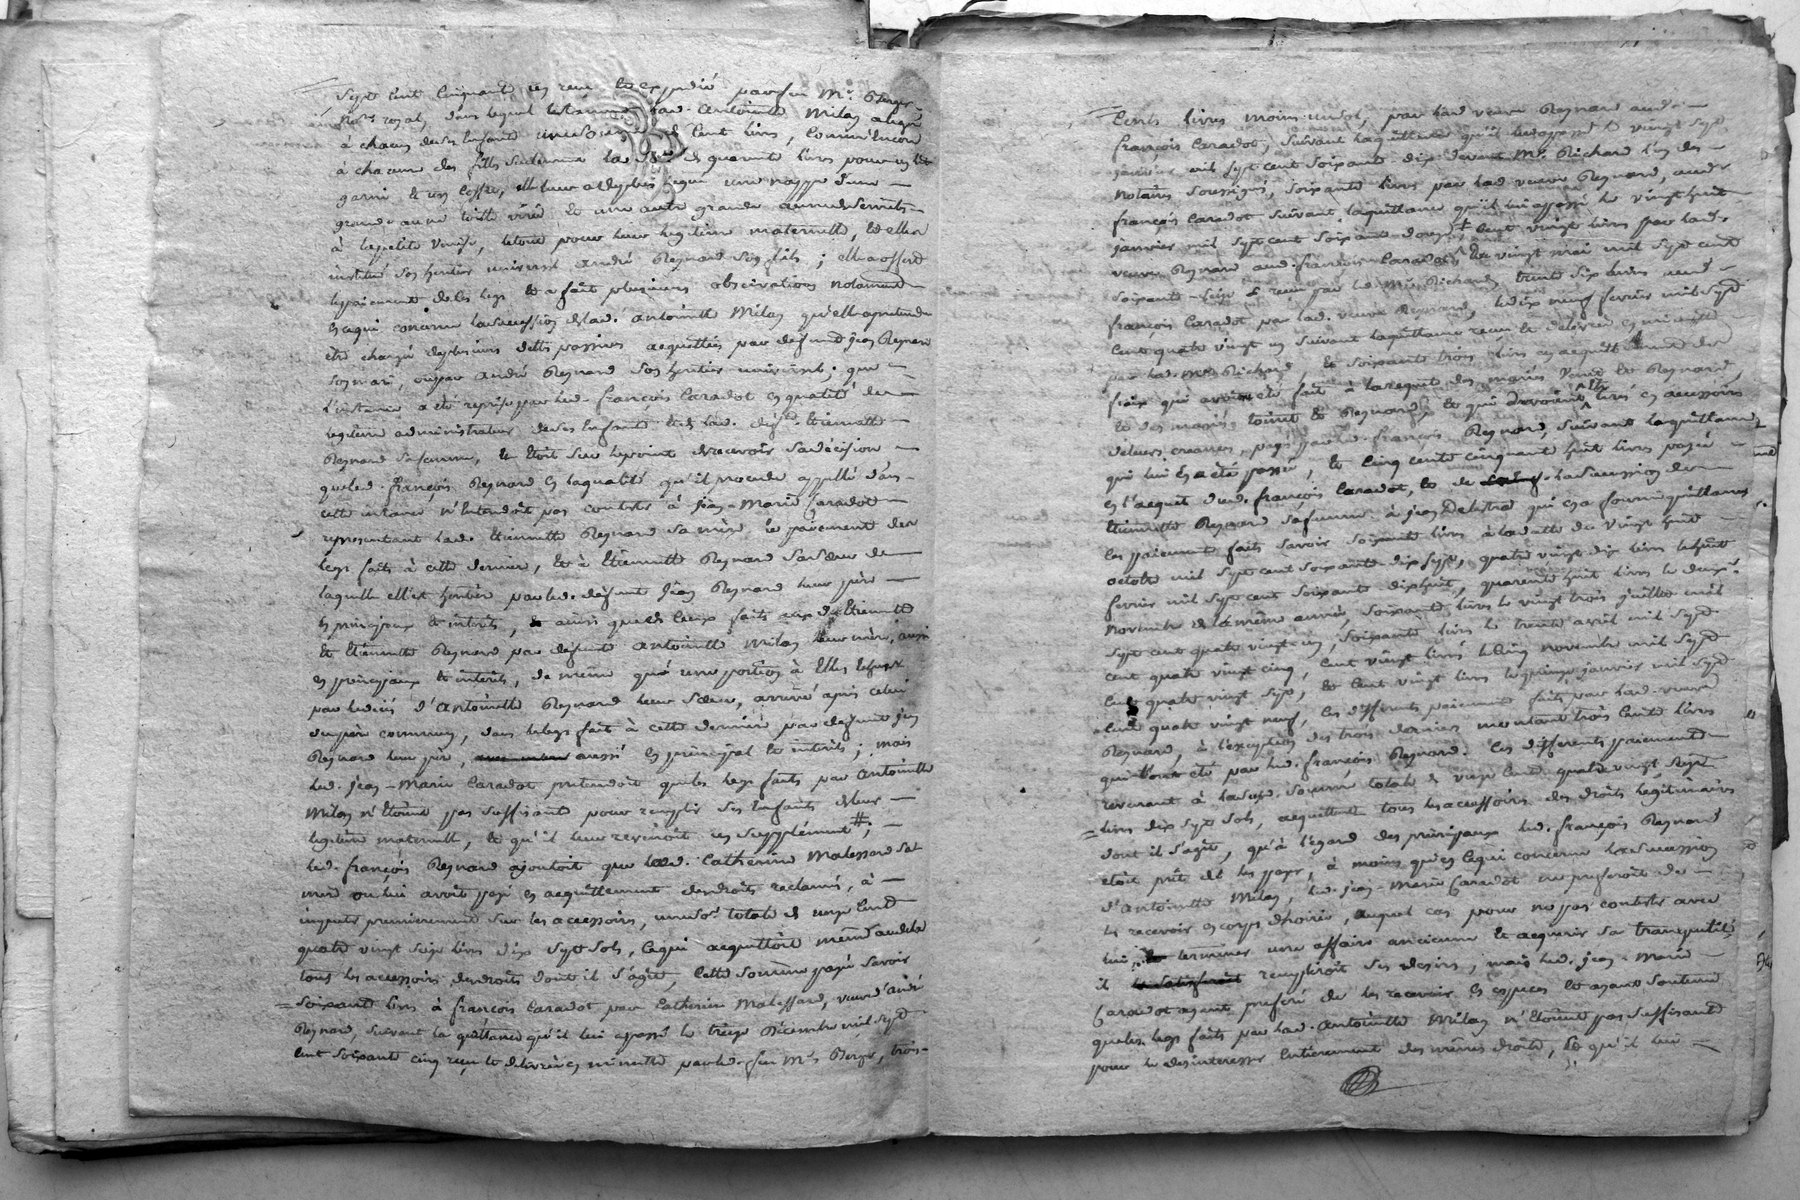 Sept cent cinquante un reçu et expedié par feu Me. Berger
No.re royal, dans lequel testament lad. antoinette Milan a legué
à chacun de ses Enfants de Cent livres, comme Encore
à chacune des filles de quarante livres pour un lit
garni et un coffre, elle leur a de plus legué une nappe d'une
grande aune toille et une autre grande aune de serviettes
à la petite venise, le tout pour leur legitime maternelle, et elle a
institué son heritier universel andré Reynard son fils ; elle a offert
le paiement de les legs et a fait plusieurs observations notament
en ce qui concerne la succession de lad. antoinette Milan qu'elle a pretendu
être chargée de plusieurs dettes passives acquittées par defunt jean Reynard
son mari, ou par andré Reynard son heritier universel. que
l'instance a été reprise par led. françois Caradot en qualité de
legitime administrateur de ses Enfants et de lad. def.te Etiennette
Reynard sa femme, et étoit sur le point de recevoir sa décision
que led. françois Reynard en la qualité qu'il procede appellé dans
cette instance n'Entendoit pas contester à jean-Marie Caradot
representant lad. Etiennette Reynard sa mère le paiement des
legs faits à cette derniere, et à Etiennette Reynard sa sœur de
laquelle elle est heritiere par led. defunt jean Reynard leur père
en principaux et intérêts, ainsi que de ceux faits aux d. Etiennette
et Etiennette Reynard par defunte antoinette Milan leur mère, aussi
en principaux et intérêts, de même que une portion à Elles
par le décès d'antoinette Reynard leur sœur, arrivé après celui
du père commun, dans le legs fait à cette derniere par defunt jean
Reynard leur père, aussi en principal et intérêts ; mais
led. jean-Marie Caradot pretendoit que les legs faits par antoinette
Milan n'Etoient pas suffisants pour remplir ses Enfants de leur
legitime maternelle, et qu'il leur revenoit un supplément #. ;
led. françois Reynard ajoutoit que lad. Catherine Malessard sa
mere ou lui avoit payé en acquittement des droits reclamés, à
imputer premierement sur les accessoires, une so.e totale de onze Cent
quatre vingt seize livres dix sept sols, ce qui acquittoit même au dela
tous les accessoires des droits dont il s'agit, Cette somme payée savoir
soixante livres à françois Caradot par Catherine Malessard, veuve d'andré
Reynard, suivant la quittance qu'il lui a passé le treize décembre mil sept
cent soixante cinq reçue et delivrée en minutte par led. feu Me. Berger, trois
Cents livres moins un sol, par lad. veuve Reynard aud.
françois Caradot, suivant la quittance qu'il lui a passé le vingt sept
janvier mil sept cent soixante dix devant Me. Richard l'un des
notaires soussignés, soixante livres par lad. veuve Reynard, aud.
françois Caradot suivant la quittance qu'il lui a passé le vingt huit
janvier mil sept cent soixante douze, # Cent vingt livres par lad.
veuve Reynard aud. françois Caradot le vingt mai mil sept cent
soixante-seize reçue par led. Me. Richard, trente six livres aud.
françois Caradot par lad. veuve Reynard, le dix neuf fevrier mil sept
Cent quatre vingt un suivant la quittance reçue et delivrée en minutte
par led. Me. Richard, et soixante trois livres en acquittement des
frais qui avoient été fait à la requete des mariés et Reynard,
et des mariés et Reynard, et qui livres en accessoires
de leurs creances, payés par led. françois Reynard, suivant la quittance
qui lui En a été passée, et Cinq cents cinquante huit livres payés
en l'acquet dud. françois Caradot, et de la succession de
Etiennette Reynard sa femme à jean Delestra qui en a fourni quittances
les paiement faits savoir soixante livres à la datte du vingt huit
octobre mil sept cent soixante dix sept, quatre vingt dix livres le huit
fevrier mil sept cent soixante dix huit, quarente huit livres le deux
novembre de la même année, soixante livres le vingt trois juillet mil
sept cent quatre vingt un, soixante livres le trente avril mil sept
cent quatre vingt cinq, cent vingt livres le cinq novembre mil sept
cent quatre vingt sept, et cent vingt livres le quinze janvier mil sept
cent quatre vingt neuf, ces differents paiement faits par lad. veuve
Reynard, à l'exception des trois derniers montant trois Cents livres
qui l'ont été par led. françois Reynard. Ces differents paiement
revenant à lad. somme totale de onze cent quatre vingt seize
livres dix sept sols, acquittent tous les accessoires des droits legitimaires
dont il s'agit, qu'à l'égard des principaux led. françois Reynard
étoit prêt de les payer, à moins qu'en ce qui concerne la succession
d'antoinette Milan, led. jean-Marie Caradot ne prefereroit de
les recevoir en corps d'hoirie, auquel cas pour ne pas contester avec
lui terminer une affaire ancienne et acquerir sa tranquilité
il rempliroit ses desirs, mais led. jean-Marie
Caradot ayant preferé de les recevoir en especes et ayant soutenu
que les legs faits par lad. antoinette Milan n'Etoient pas suffisants
pour le desinteresser Entierement des mêmes droits, et qu'il lui